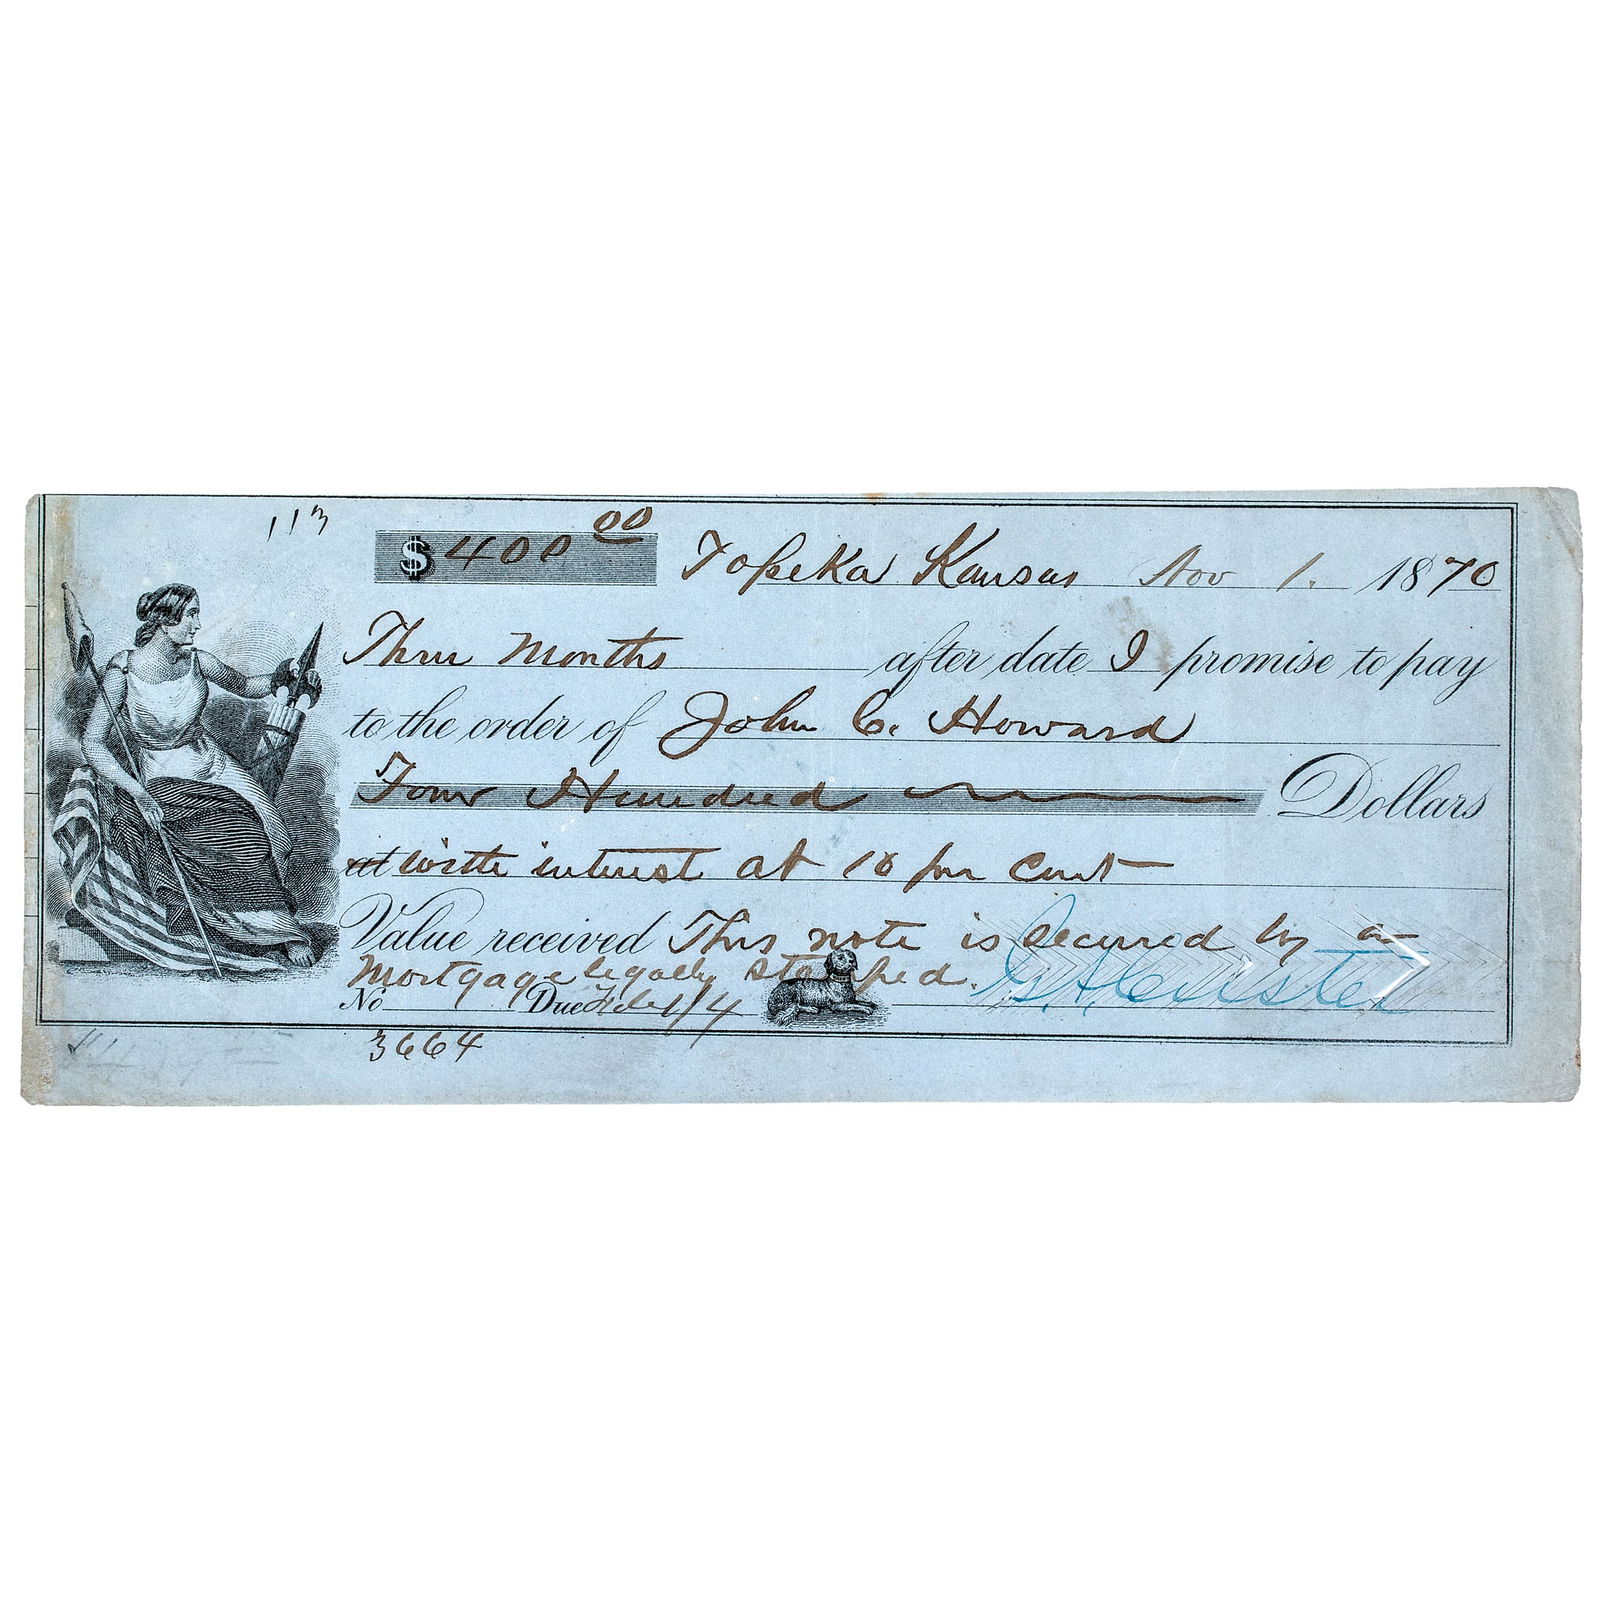 113
$400 00 Topeka Kansas Nov 1. 1870
Three Months after date I promise to pay
to the order of John C. Howard
Four Hundred Dollars
at with interest at 10 per cent
Value received This note is secured by a
Mortgage legally stamped.
No Due Feb 1/4 G A Custer
3664